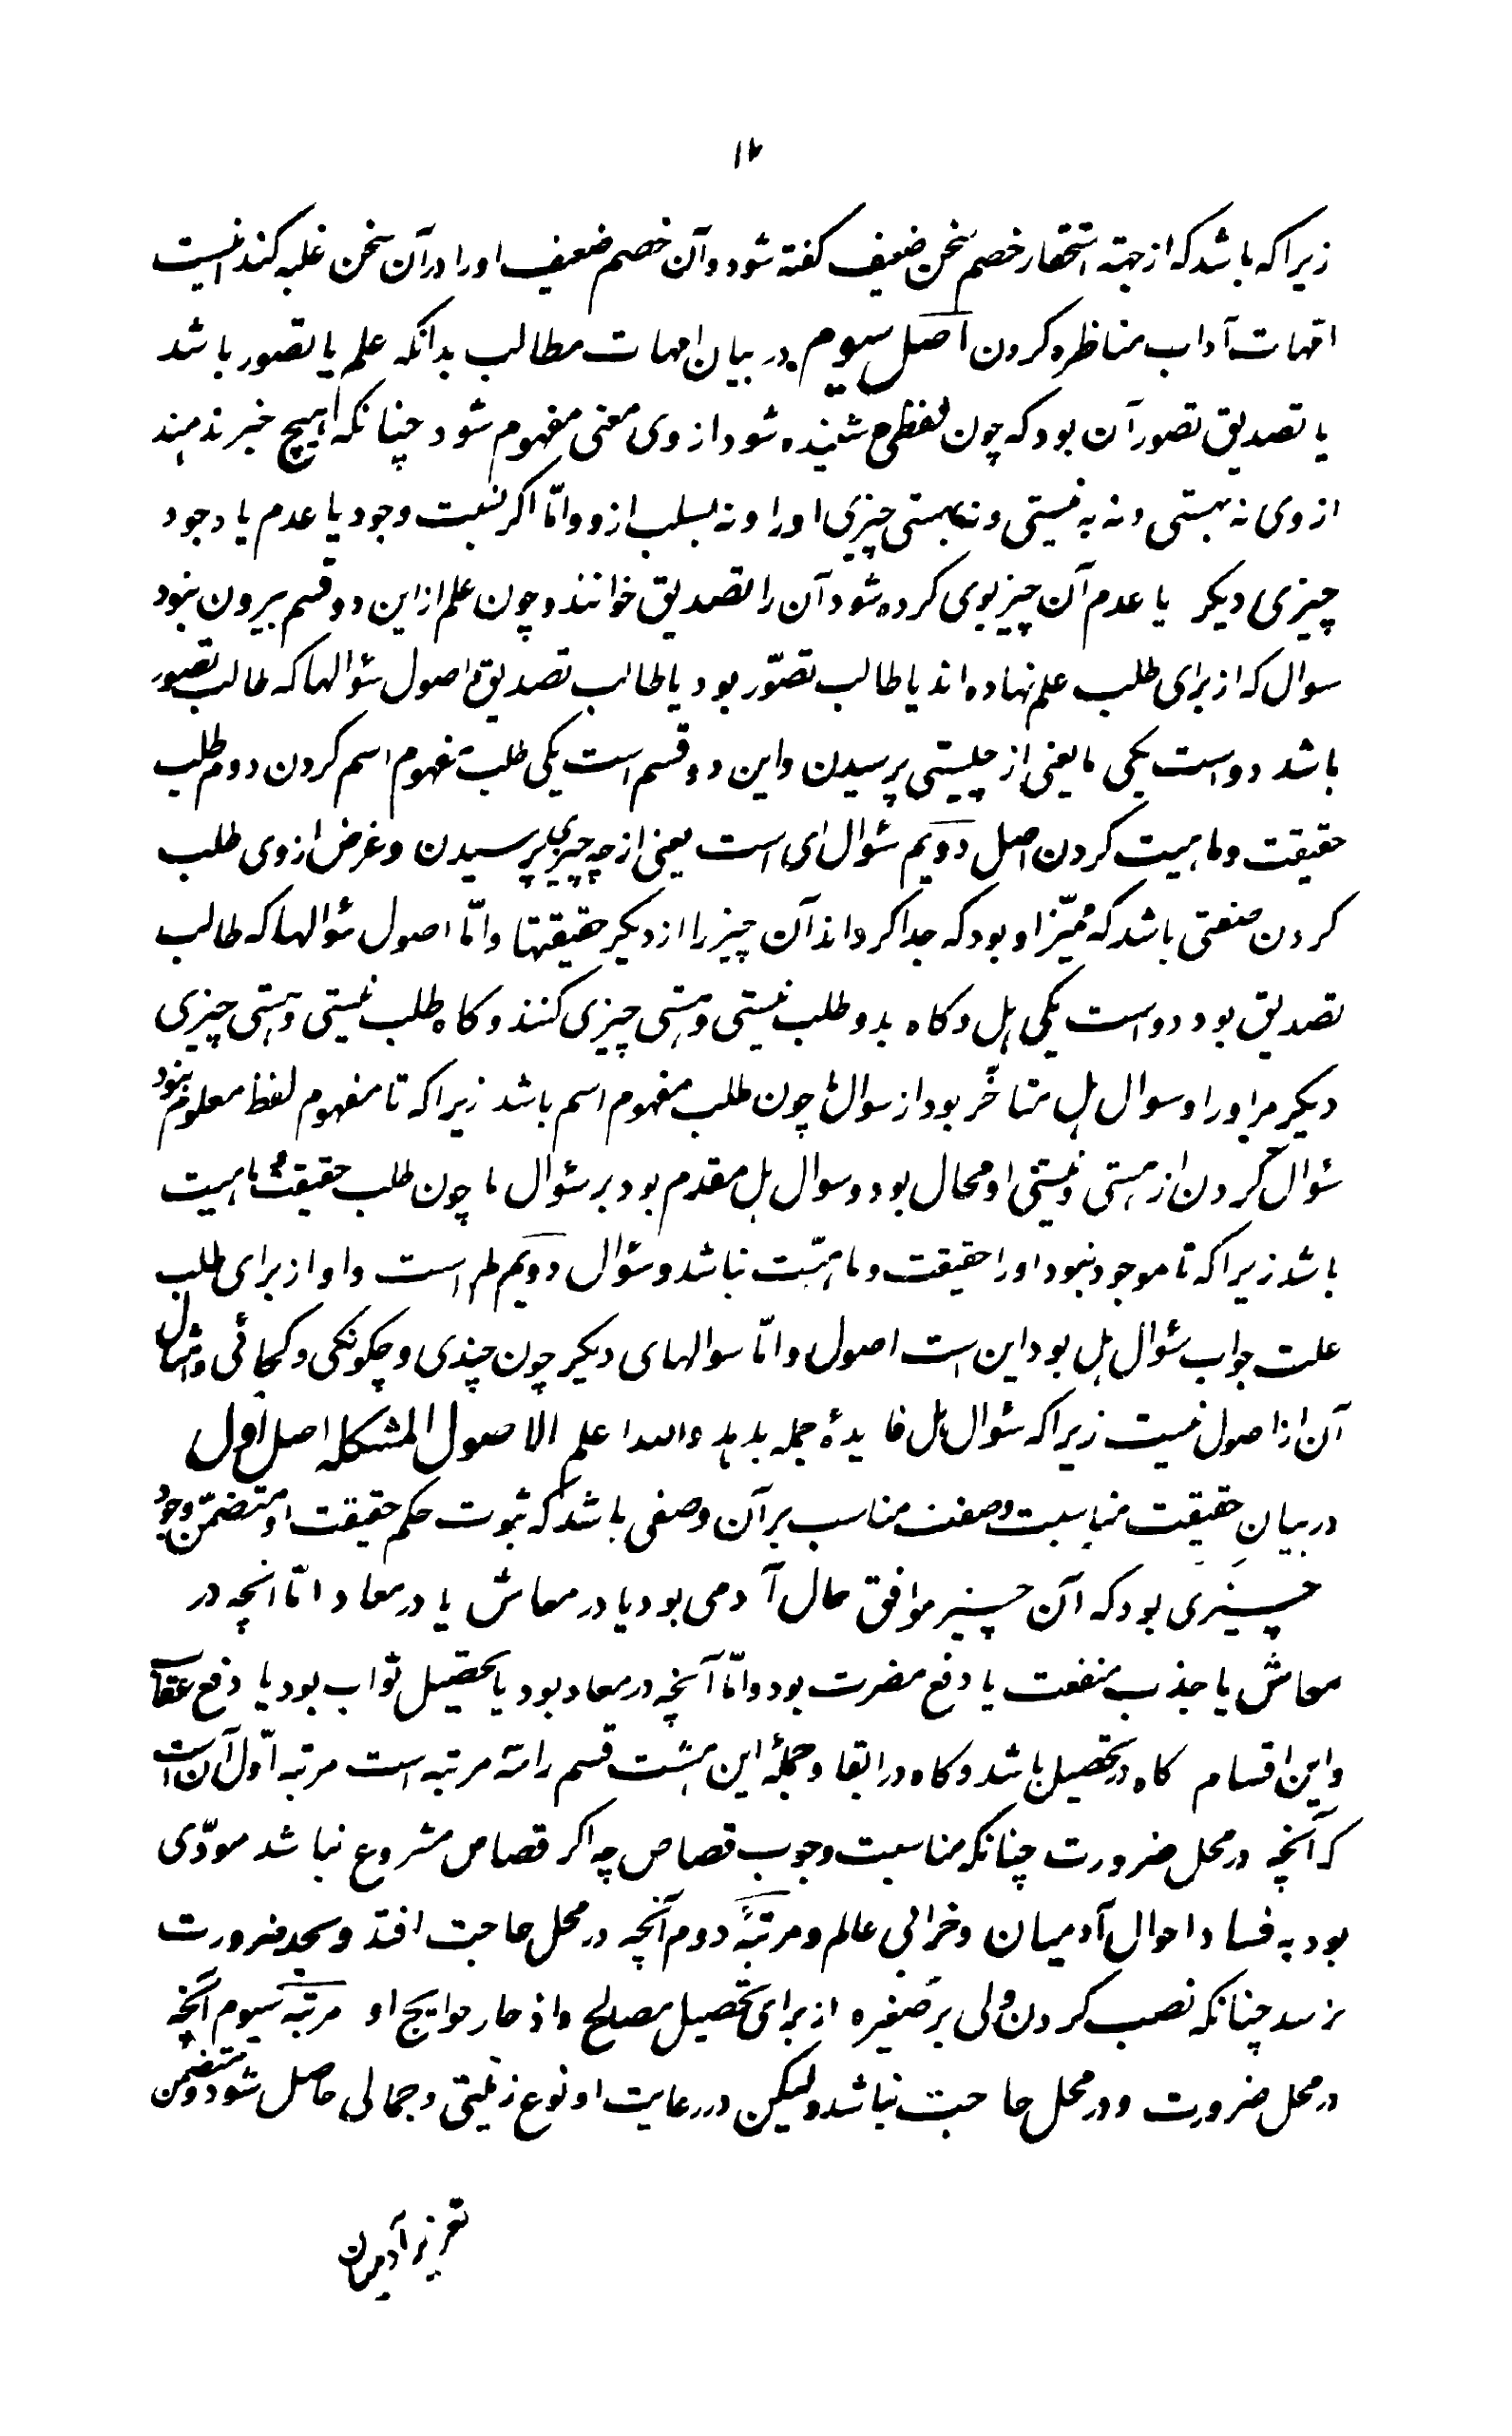 ۱۲
زیرا که باشد که از جهة استحقار خصم سخن ضعیف کفته شود و آن خصم ضعیف او را در آن سخن غلبه کند اینست
امّهات آداب مناظره کردن اصل سیوم در بیان امهات مطالب بدانکه علم یا تصور باشد
یا تصدیق تصور آن بود که چون لفظی شنیده شود از وی معنی مفهوم شود چنانکه هیچ خبر ندهند
از وی نه بهستی و نه به نیستی و نه بهستی چیزی او را و نه بسلب ازو و امّا اکر نسبت وجود یا عدم یا وجود
چیزی دیکر یا عدم آن چیز بوی کرده شود آن را تصدیق خوانند و چون علم ازاین دو قسم بیرون نبود
سوال که از برای طلب علم نهاده اند یا طالب تصوّر بود یا طالب تصدیق اصول سؤالها که طالب تصور
باشد دو است یکی ما یعنی از چیستی پرسیدن و این دو قسم است یکی طلب مفهوم اسم کردن دوم طلب
حقیقت و ماهیت کردن اصل دویم سؤال ای است یعنی از چه چیزی پرسیدن و غرض از وی طلب
کردن صفتی باشد که ممیّز او بود که جدا کرداند آن چیز را از دیکر حقیقتها و امّا اصول سؤالها که طالب
تصدیق بود دو است یکی هل و کاه بدو طلب نیستی و هستی چیزی کنند و کاه طلب نیستی و هستی چیزی
دیکر مر او را و سوال هل متاخّر بود از سوال ما چون طلب مفهوم اسم باشد زیرا که تا مفهوم لفظ معلوم نبود
سؤال کردن از هستی و نیستی او محال بود و سوال هل مقدم بود بر سؤال ما چون طلب حقیقت و ماهیت
باشد زیرا که تا موجود نبود او را حقیقت و ماهیّت نباشد و سؤال دویم لم است و او از برای طلب
علت جواب سؤال هل بود این است اصول و امّا سوالهای دیکر چون چندی و چکونکی و کجائی و امثال
آن از اصول نیست زیرا که سؤال هل فایدۀ جمله بدهد والله اعلم الاصول المشکله اصل اول
در بیان حقیقت مناسبت وصفت مناسب بر آن وصفی باشد که ثبوت حکم حقیقت او متضمّن وجود
چیزی بود که آن چیز موافق حال آدمی بود یا در معاش یا در معاد امّا انچه در
معاش یا جذب منفعت یا دفع مضرت بود و امّا آنچه در معاد بود یا تحصیل ثواب بود یا دفع عقاب
و این اقسام کاه در تحصیل باشد و کاه در ابقا و جملۀ این هشت قسم را سه مرتبه است مرتبه اوّل آن است
که آنچه در محل ضرورت چنانکه مناسبت وجوب قصاص چه اکر قصاص مشروع نباشد مودّی
بود به فساد احوال آدمیان و خرابی عالم و مرتبۀ دوم آنچه در محل حاجت افتد و بحد ضرورت
نرسد چنانکه نصب کردن ولی بر صغیره از برای تحصیل مصالح و اذخار حوایج او مرتبه سیوم آنچه
در محل ضرورت و در محل حاجت نباشد ولیکن در رعایت او نوع زینتی و جمالی حاصل شود و متضمن
آدمیان